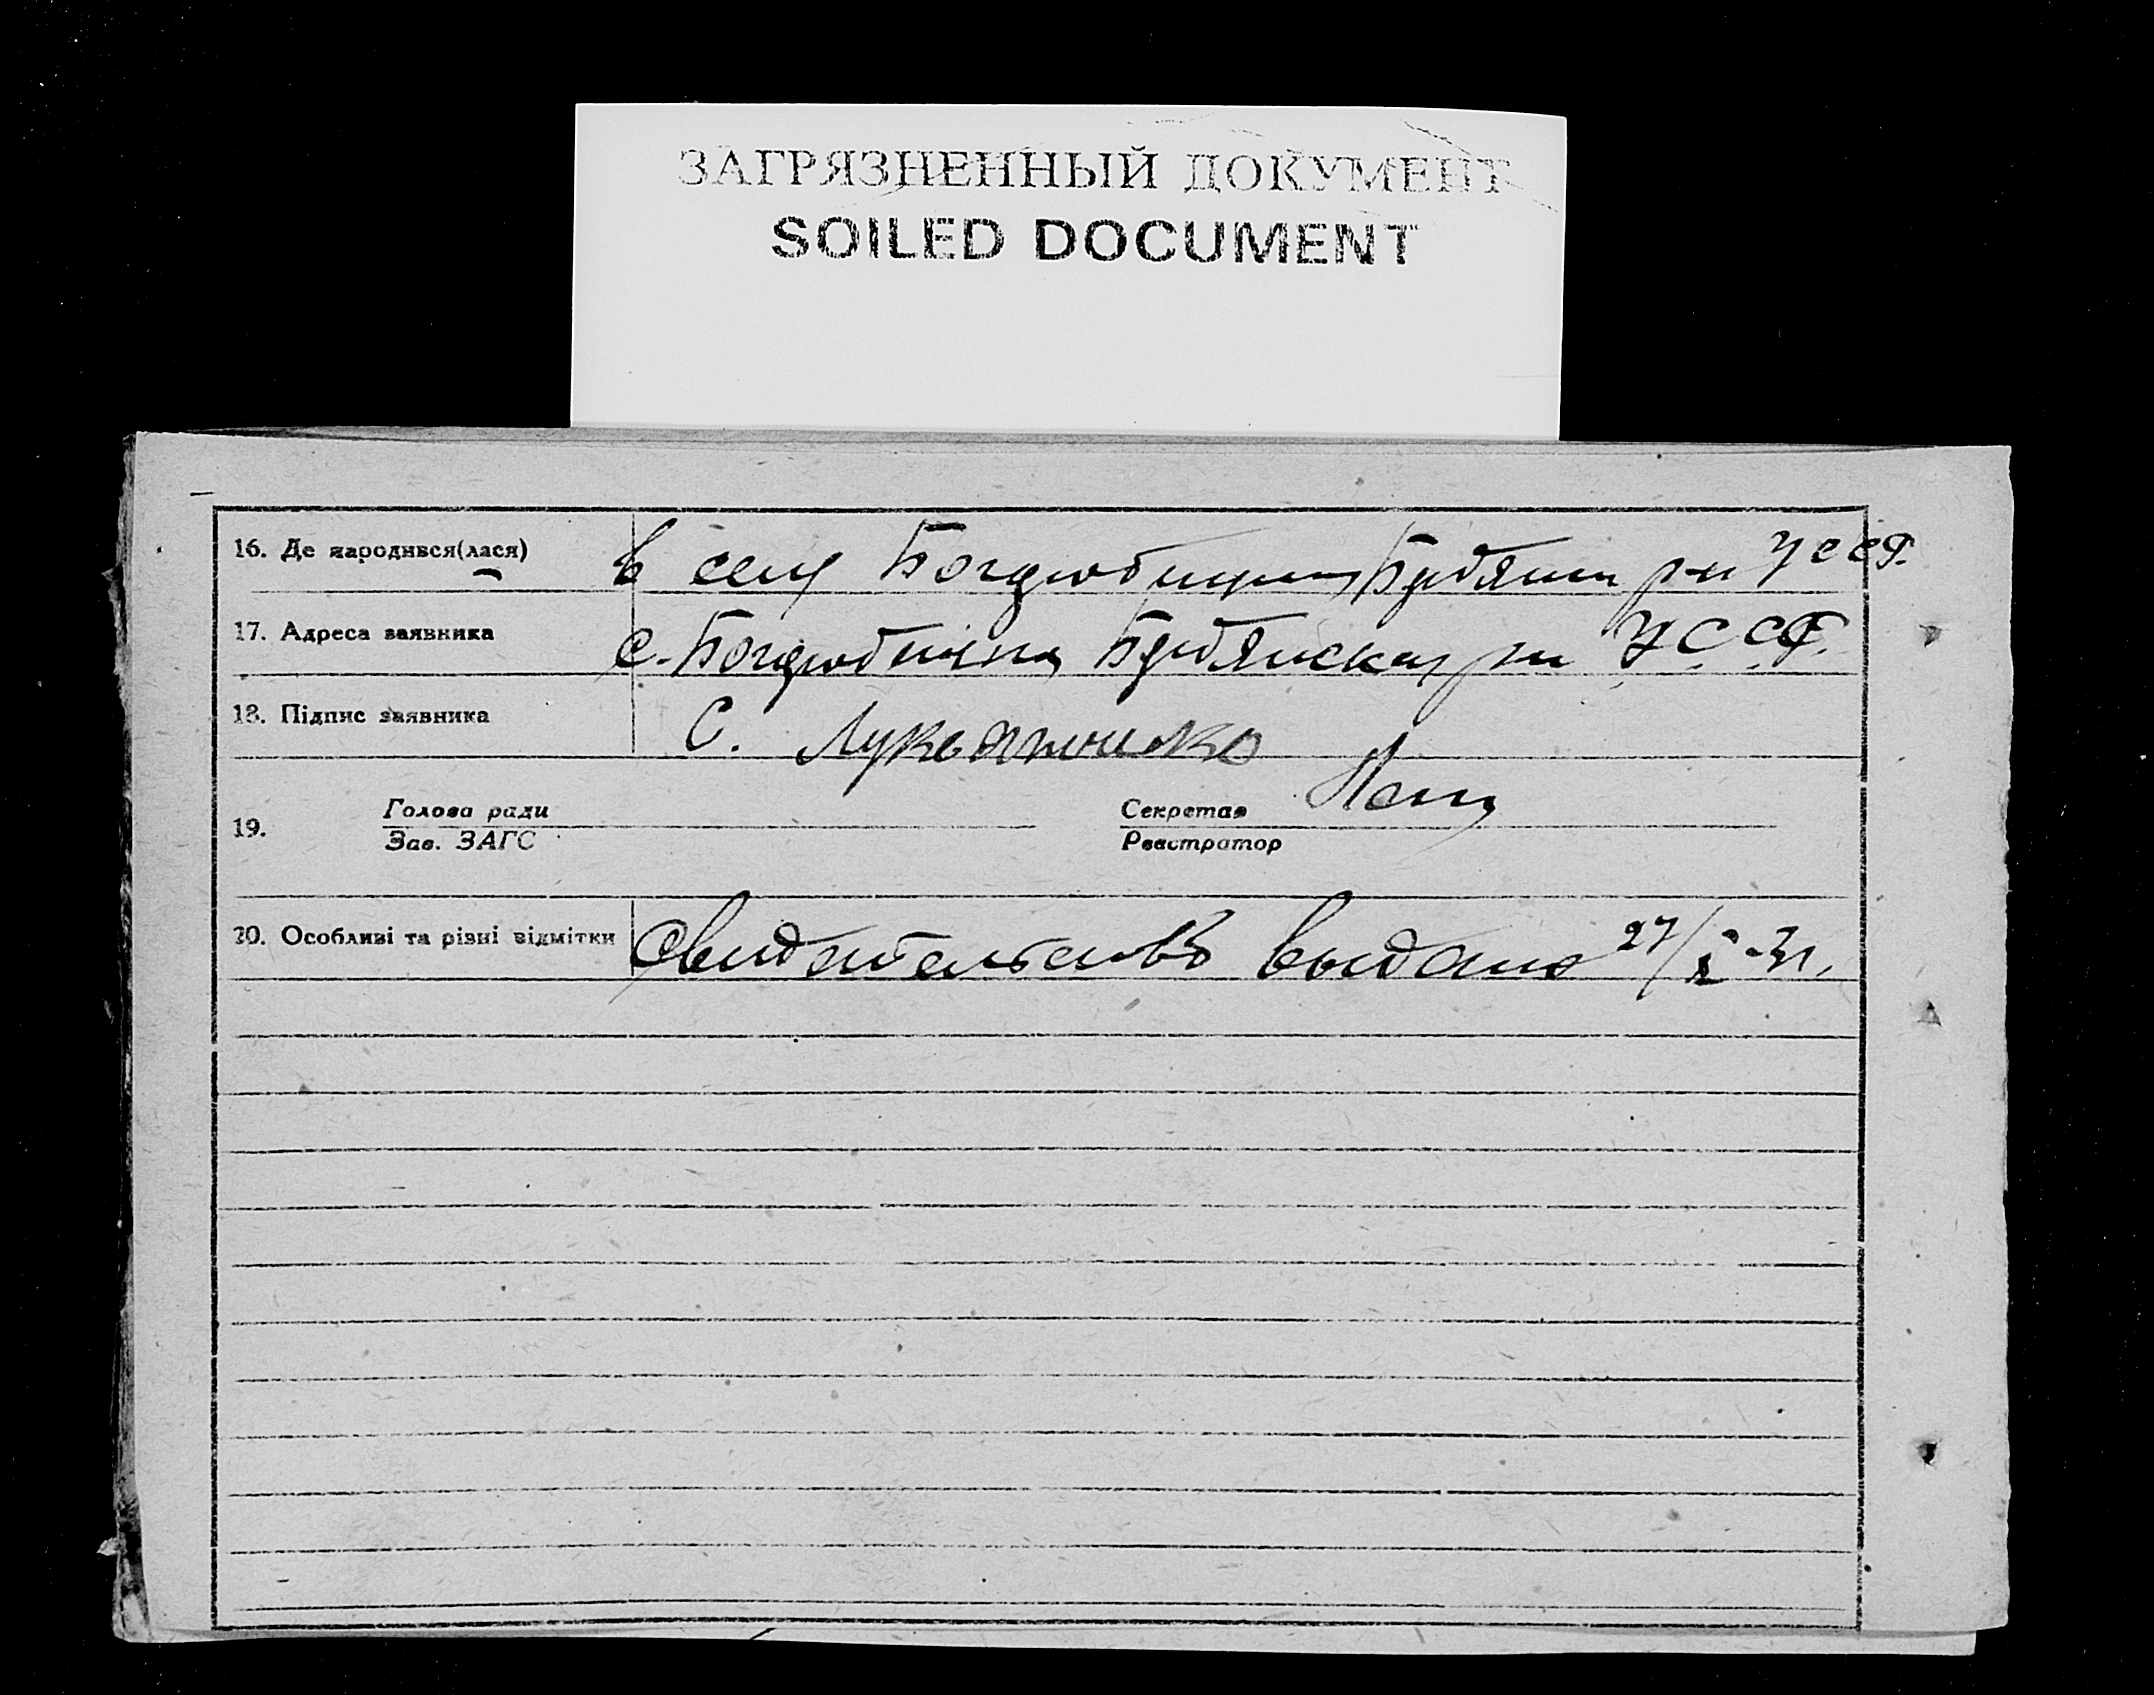 ЗАГРЯЗНЕННЫЙ ДОКУМЕНТ
SOILED DOCUMENT
16. Де народився(лася) в селу р-н УССР.
17. Адреса заявника с. р-н УССР.
18. Підпис заявника С. Лукьяненко
19. Голова ради
Зав. ЗАГС
Секретар
Реєстратор
20. Особливі та різні відмітки Свидительство выдано 27/X-31.